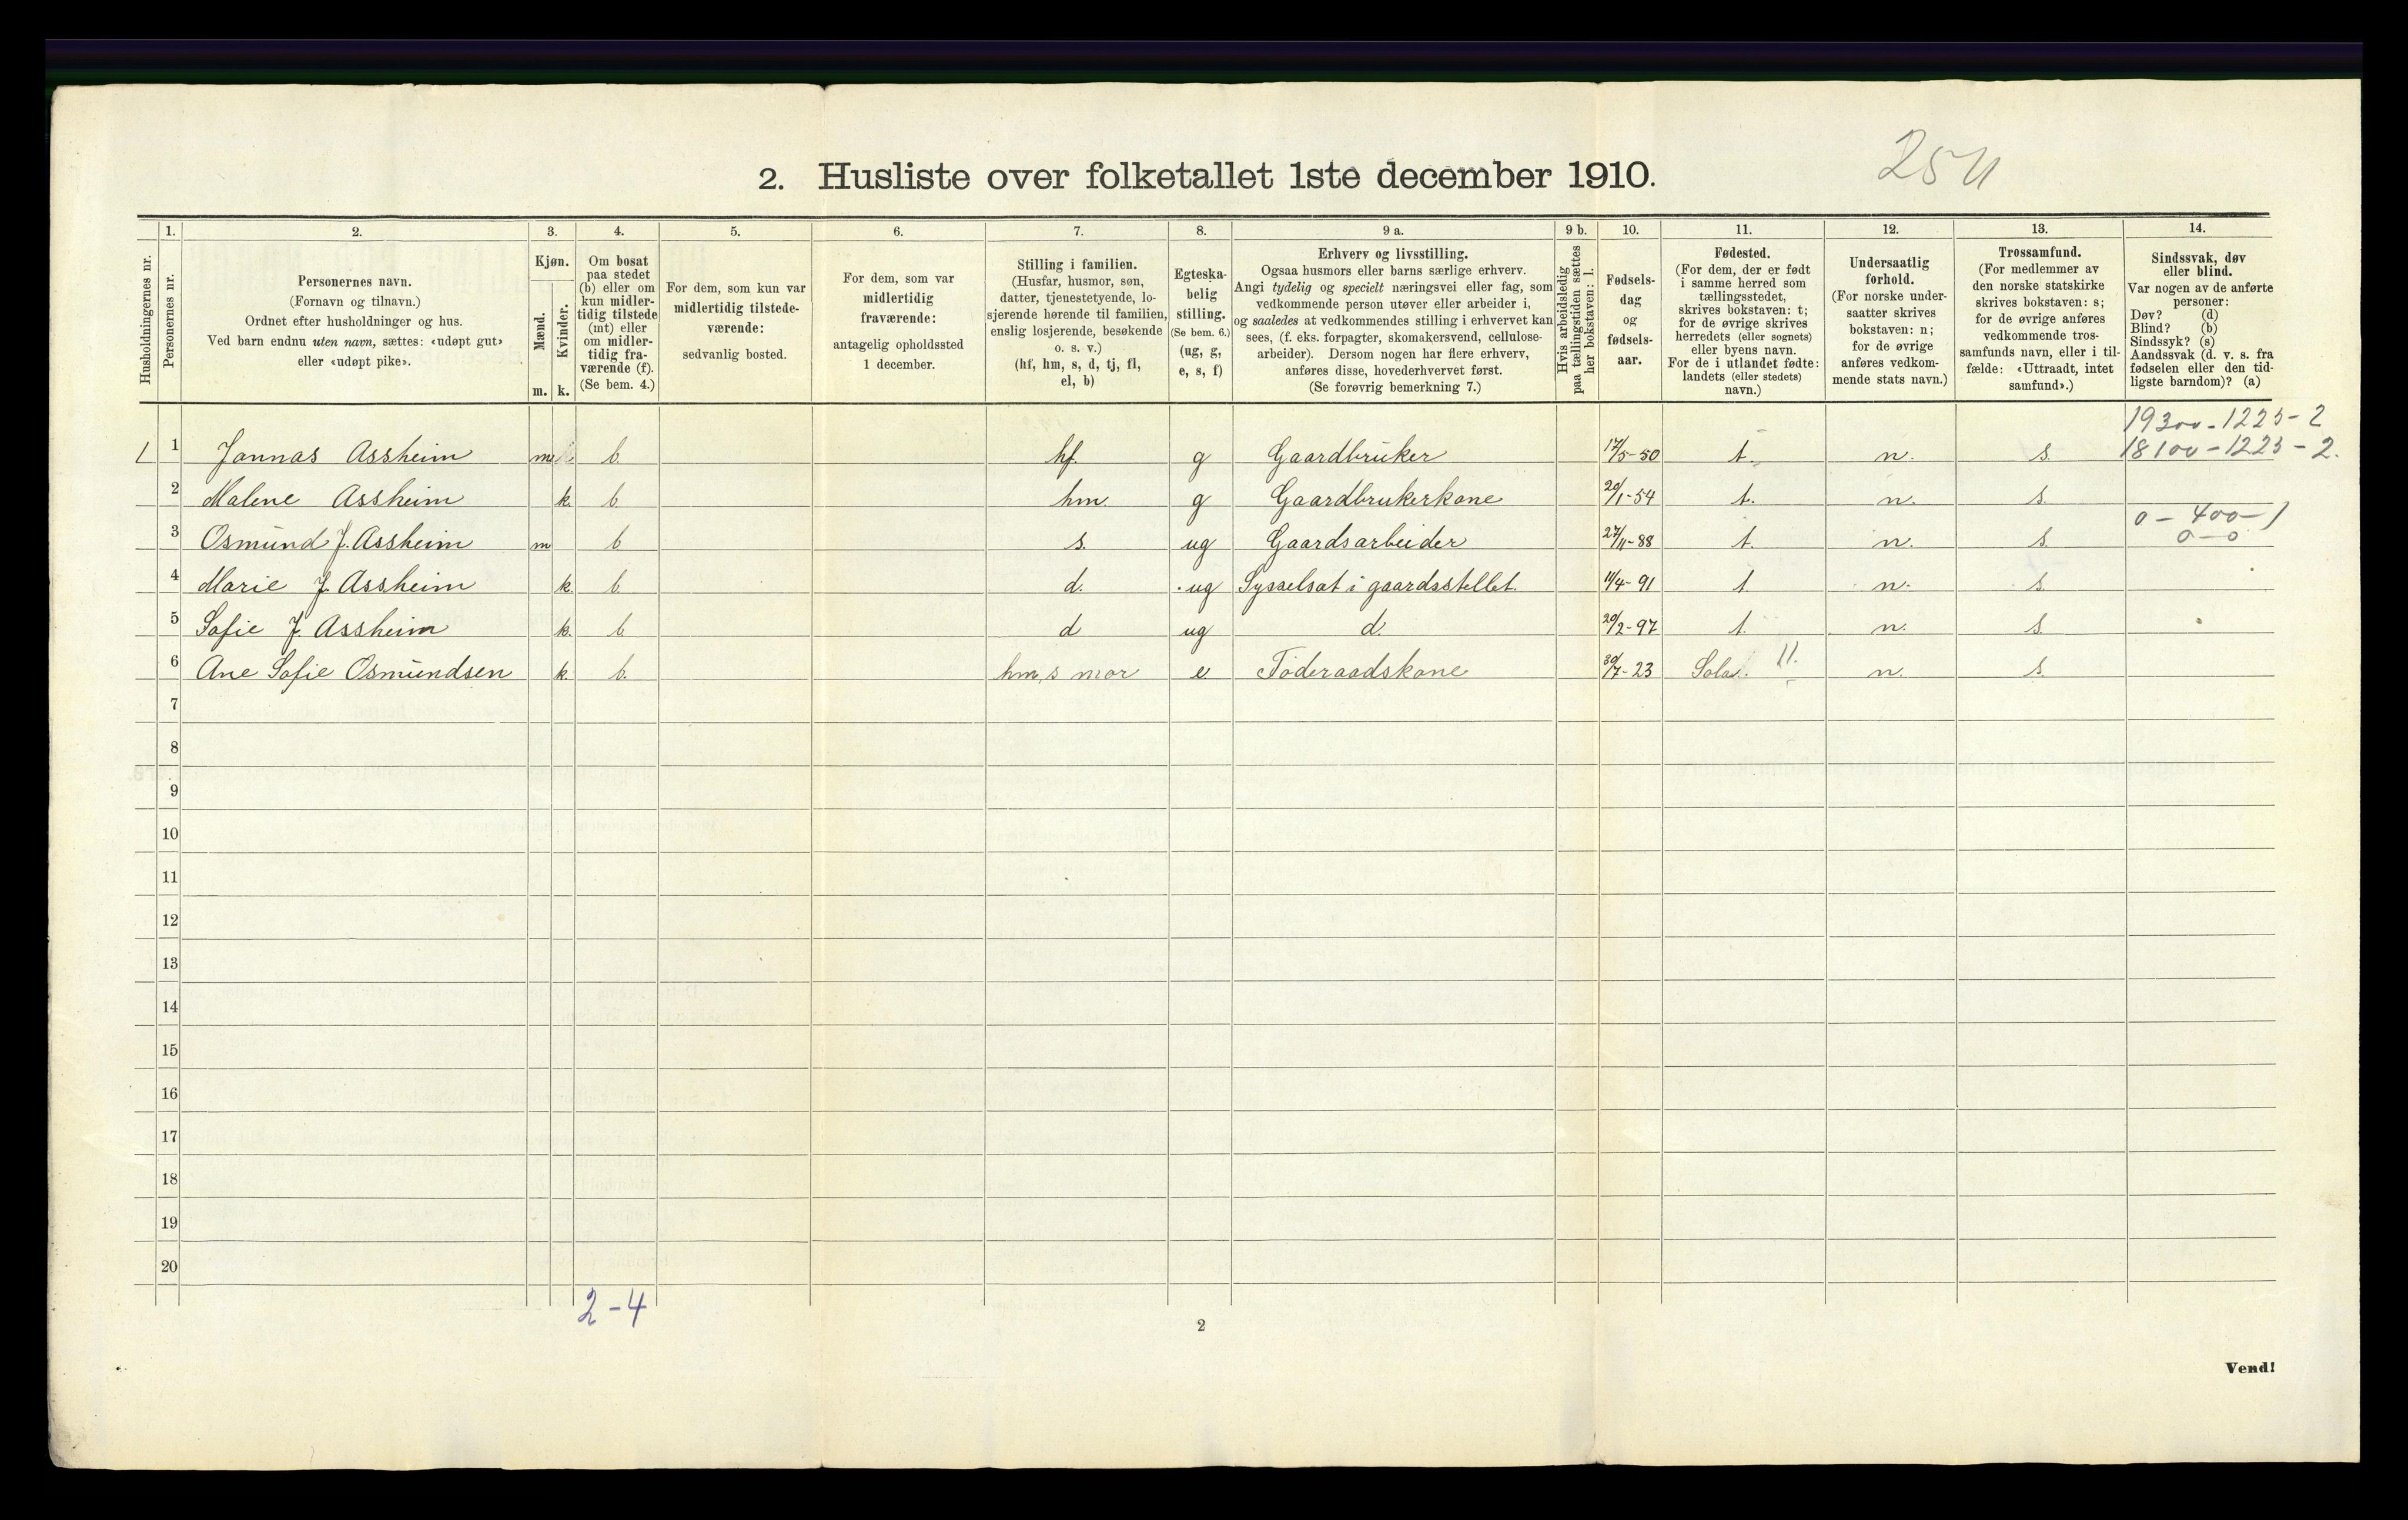 254
2. Husliste over folketallet 1ste december 1910.
Husholdningernes nr.
1. Personernes nr.
2. Personernes navn.
(Fornavn og tilnavn.)
Ordnet efter husholdninger og hus.
Ved barn endnu uten navn, sættes: «udøpt gut»
eller «udøpt pike».
3. Kjøn.
Mænd. m.
Kvinder. k.
4. Om bosat
paa stedet
(b) eller om
kun midler-
tidig tilstede
(mt) eller
om midler-
tidig fra-
værende (f).
(Se bem. 4.)
5. For dem, som kun var
midlertidig tilstede-
værende:
sedvanlig bosted.
6. For dem, som var
midlertidig
fraværende:
antagelig opholdssted
1 december.
7. Stilling i familien.
(Husfar, husmor, søn,
datter, tjenestetyende, lo-
sjerende hørende til familien,
enslig losjerende, besøkende
o. s. v.)
(hf, hm, s, d, tj, fl,
el, b)
8. Egteska-
belig
stilling.
(Se bem. 6.)
(ug, g,
e, s, f)
9 a. Erhverv og livsstilling.
Ogsaa husmors eller barns særlige erhverv.
Angi tydelig og specielt næringsvei eller fag, som
vedkommende person utøver eller arbeider i,
og saaledes at vedkommendes stilling i erhvervet kan
sees, (f. eks. forpagter, skomakersvend, cellulose-
arbeider). Dersom nogen har flere erhverv,
anføres disse, hovederhvervet først.
(Se forøvrig bemerkning 7.)
9 b. Hvis arbeidsledig
paa tællingstiden sættes
her bokstaven: l.
10. Fødsels-
dag
og
fødsels-
aar.
11. Fødested.
(For dem, der er født
i samme herred som
tællingsstedet,
skrives bokstaven: t;
for de øvrige skrives
herredets (eller sognets)
eller byens navn.
For de i utlandet fødte:
landets (eller stedets)
navn.)
12. Undersaatlig
forhold.
(For norske under-
saatter skrives
bokstaven: n;
for de øvrige
anføres vedkom-
mende stats navn.)
13. Trossamfund.
(For medlemmer av
den norske statskirke
skrives bokstaven: s;
for de øvrige anføres
vedkommende tros-
samfunds navn, eller i til-
fælde: «Uttraadt, intet
samfund».)
14. Sindssvak, døv
eller blind.
Var nogen av de anførte
personer:
Døv? (d)
Blind? (b)
Sindssyk? (s)
Aandssvak (d. v. s. fra
fødselen eller den tid-
ligste barndom)? (a)
19300 - 1225 - 2
1 1 Jonnas Assheim m b. hf. g Gaardbruker 17/5-50 t. n. s. 18100 - 1225 - 2.
2 Malene Assheim k. b. hm. g Gaardbrukerkone 20/1-54 t. n. s.
0 - 400 - 1
3 Osmund J. Assheim m b s. ug Gaardsarbeider 27/11-88 t. n. s. 0 - 0
4 Marie J. Assheim k. b. d. ug Sysselsat i gaardsstellet. 11/4-91 t. n. s.
5 Sofie J. Assheim k. b d ug d. 20/2-97 t. n. s.
6 Ane Sofie Osmundsen k. b. hm,s mor e Föderaadskone 30/7-23 Sola. 11. n. s.
7
8
9
10
11
12
13
14
15
16
17
18
19
20
2-4
2
Vend!